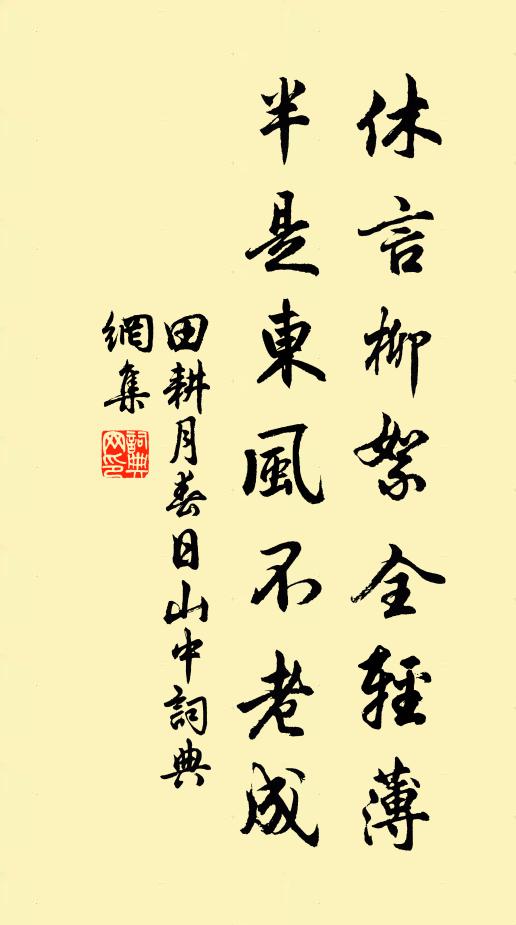 休言柳絮全輕薄
半是東風不老成
田耕月春日山中詞典
網集
詞典網印